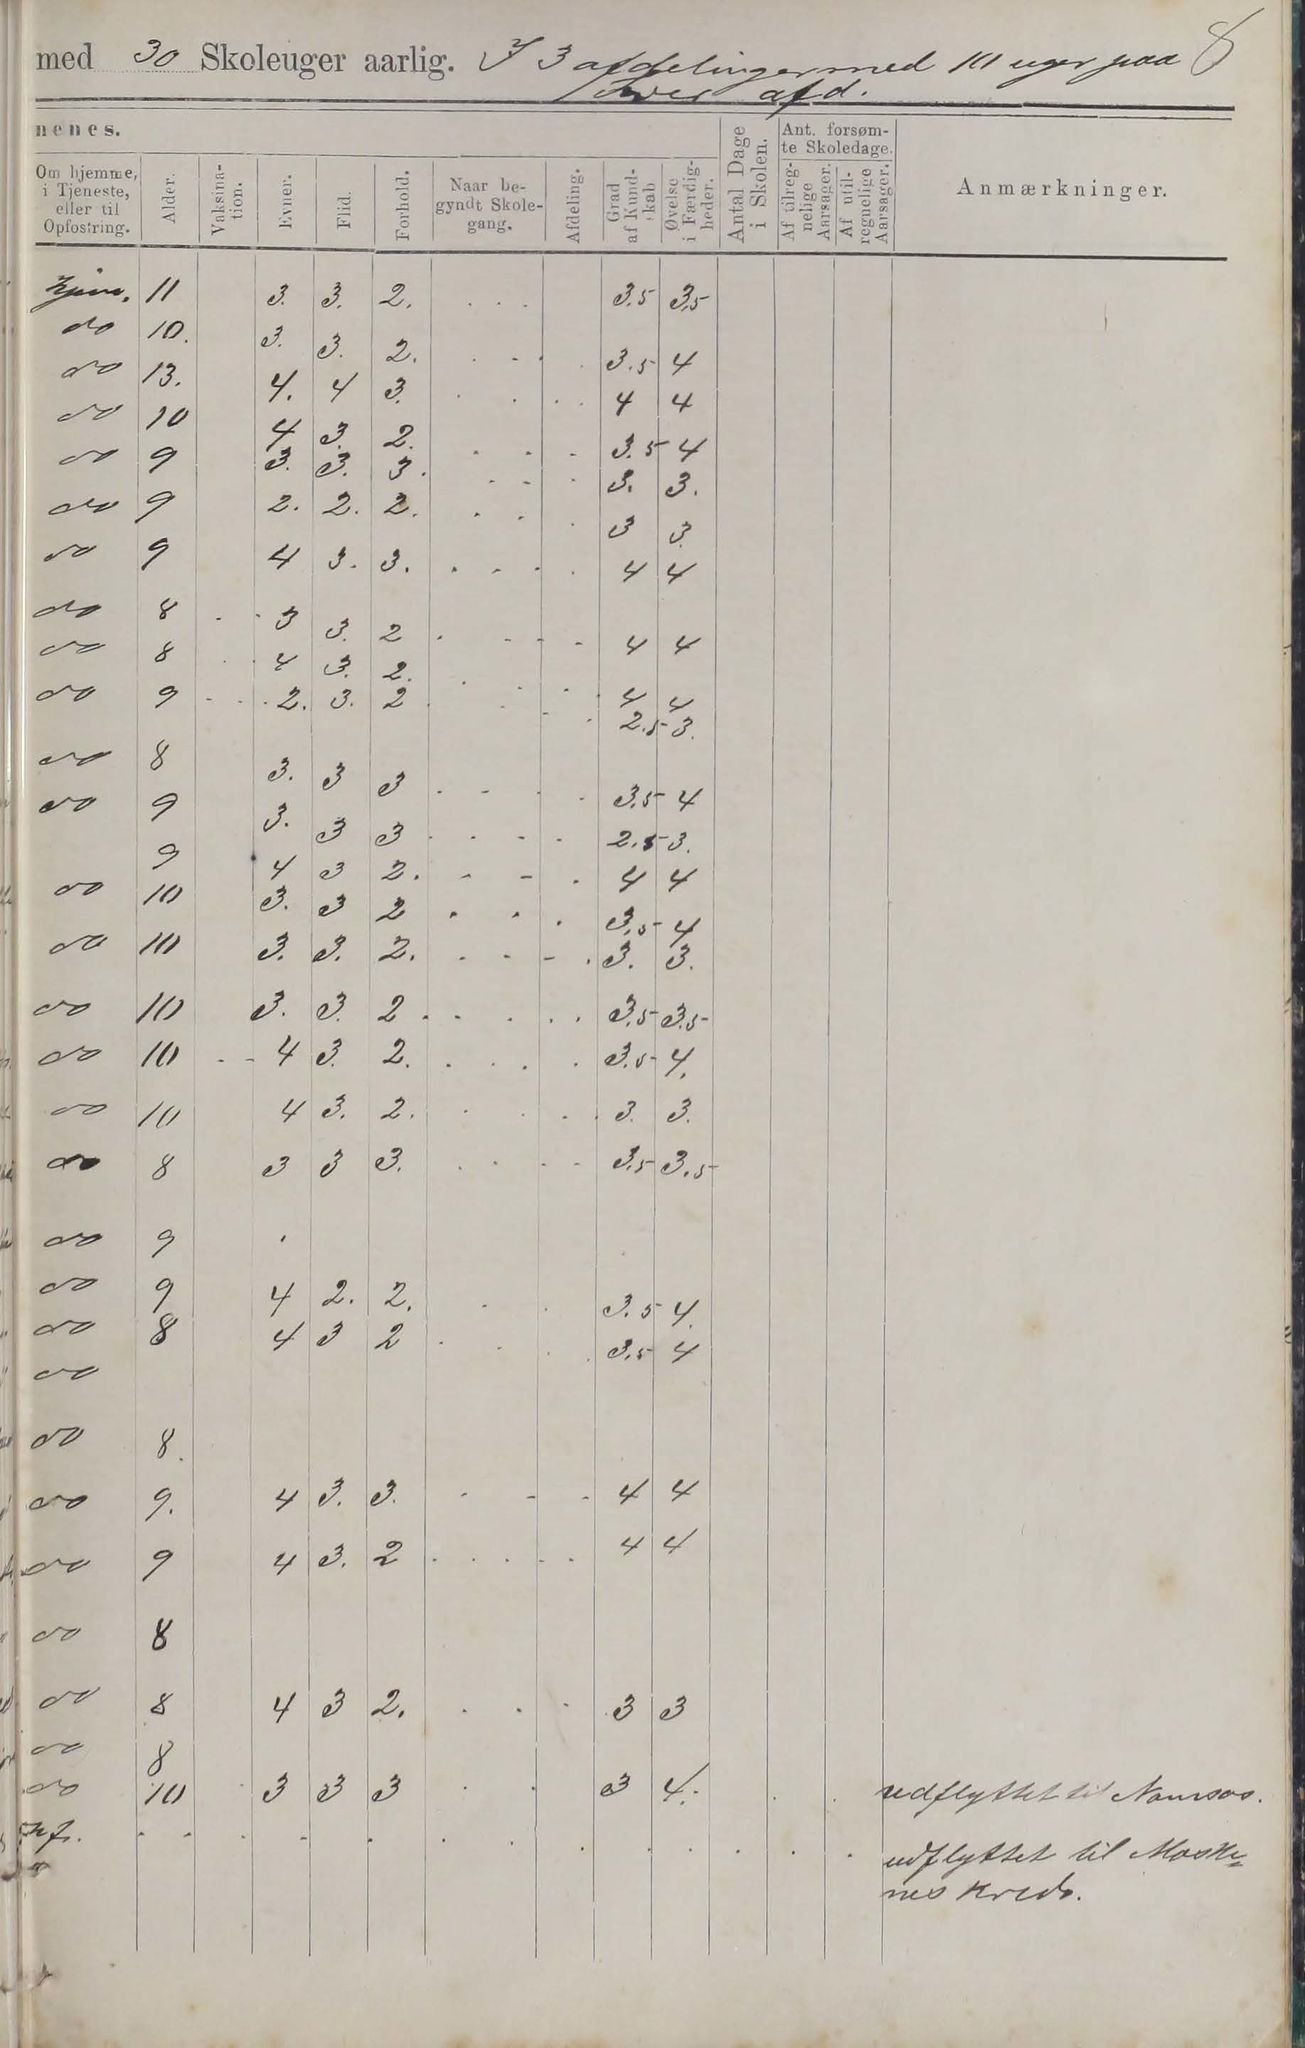 med 30 Skoleuger aarlig. I 3 afdelinger med 10 uger paa 8
hver afd.
nenes.
Om hjemme, i Tjeneste, eller til Opfostring.
Alder.
Vaksina-tion.
Evner.
Flid.
Forhold.
Naar be-gyndt Skole-gang.
Afdeling.
Grad af Kund-skab
Øvelse i Færdig-heder.
Antal Dage i Skolen.
Ant. forsøm-te Skoledage.
Af tilreg-nelige Aarsager.
Af util-regnelige Aarsager.
Anmærkninger.
hjem. 11 3. 3. 2. 3.5 3.5
do 10. 3. 3. 2. 3.5 4
do 13. 4. 4 3. 4 4
do 10 4 3. 2. 3.5 4
do 9 3. 3. 3. 3. 3.
do 9 2. 2. 2. 3 3.
do 9 4 3. 3. 4 4
do 8 3 3. 2 4 4
do 8 4 3. 2. 4 4
do 9 2. 3. 2 2.5 3.
do 8 3. 3 3 3.5 4
do 9 3. 3 3 2.5 3.
9 4 3 2. 4 4
do 10 3. 3 2 3.5 4
do 10 3. 3. 2. 3. 3.
do 10 3. 3. 2 3.5 3.5
do 10 4 3. 2. 3.5 4.
do 10 4 3. 2. 3. 3.
do 8 3 3 3. 3.5 3.5
do 9
do 9 4 2. 2. 3.5 4.
do 8 4 3 2 3.5 4
do
do 8.
do 9. 4 3. 3. 4 4
do 9 4 3. 2 4 4
do 8
do 8 4 3 2. 3 3
do 8
do 10 3 3 3 3 4. udflyttet til Namsos.
udflyttet til Moske-
nes Kreds.